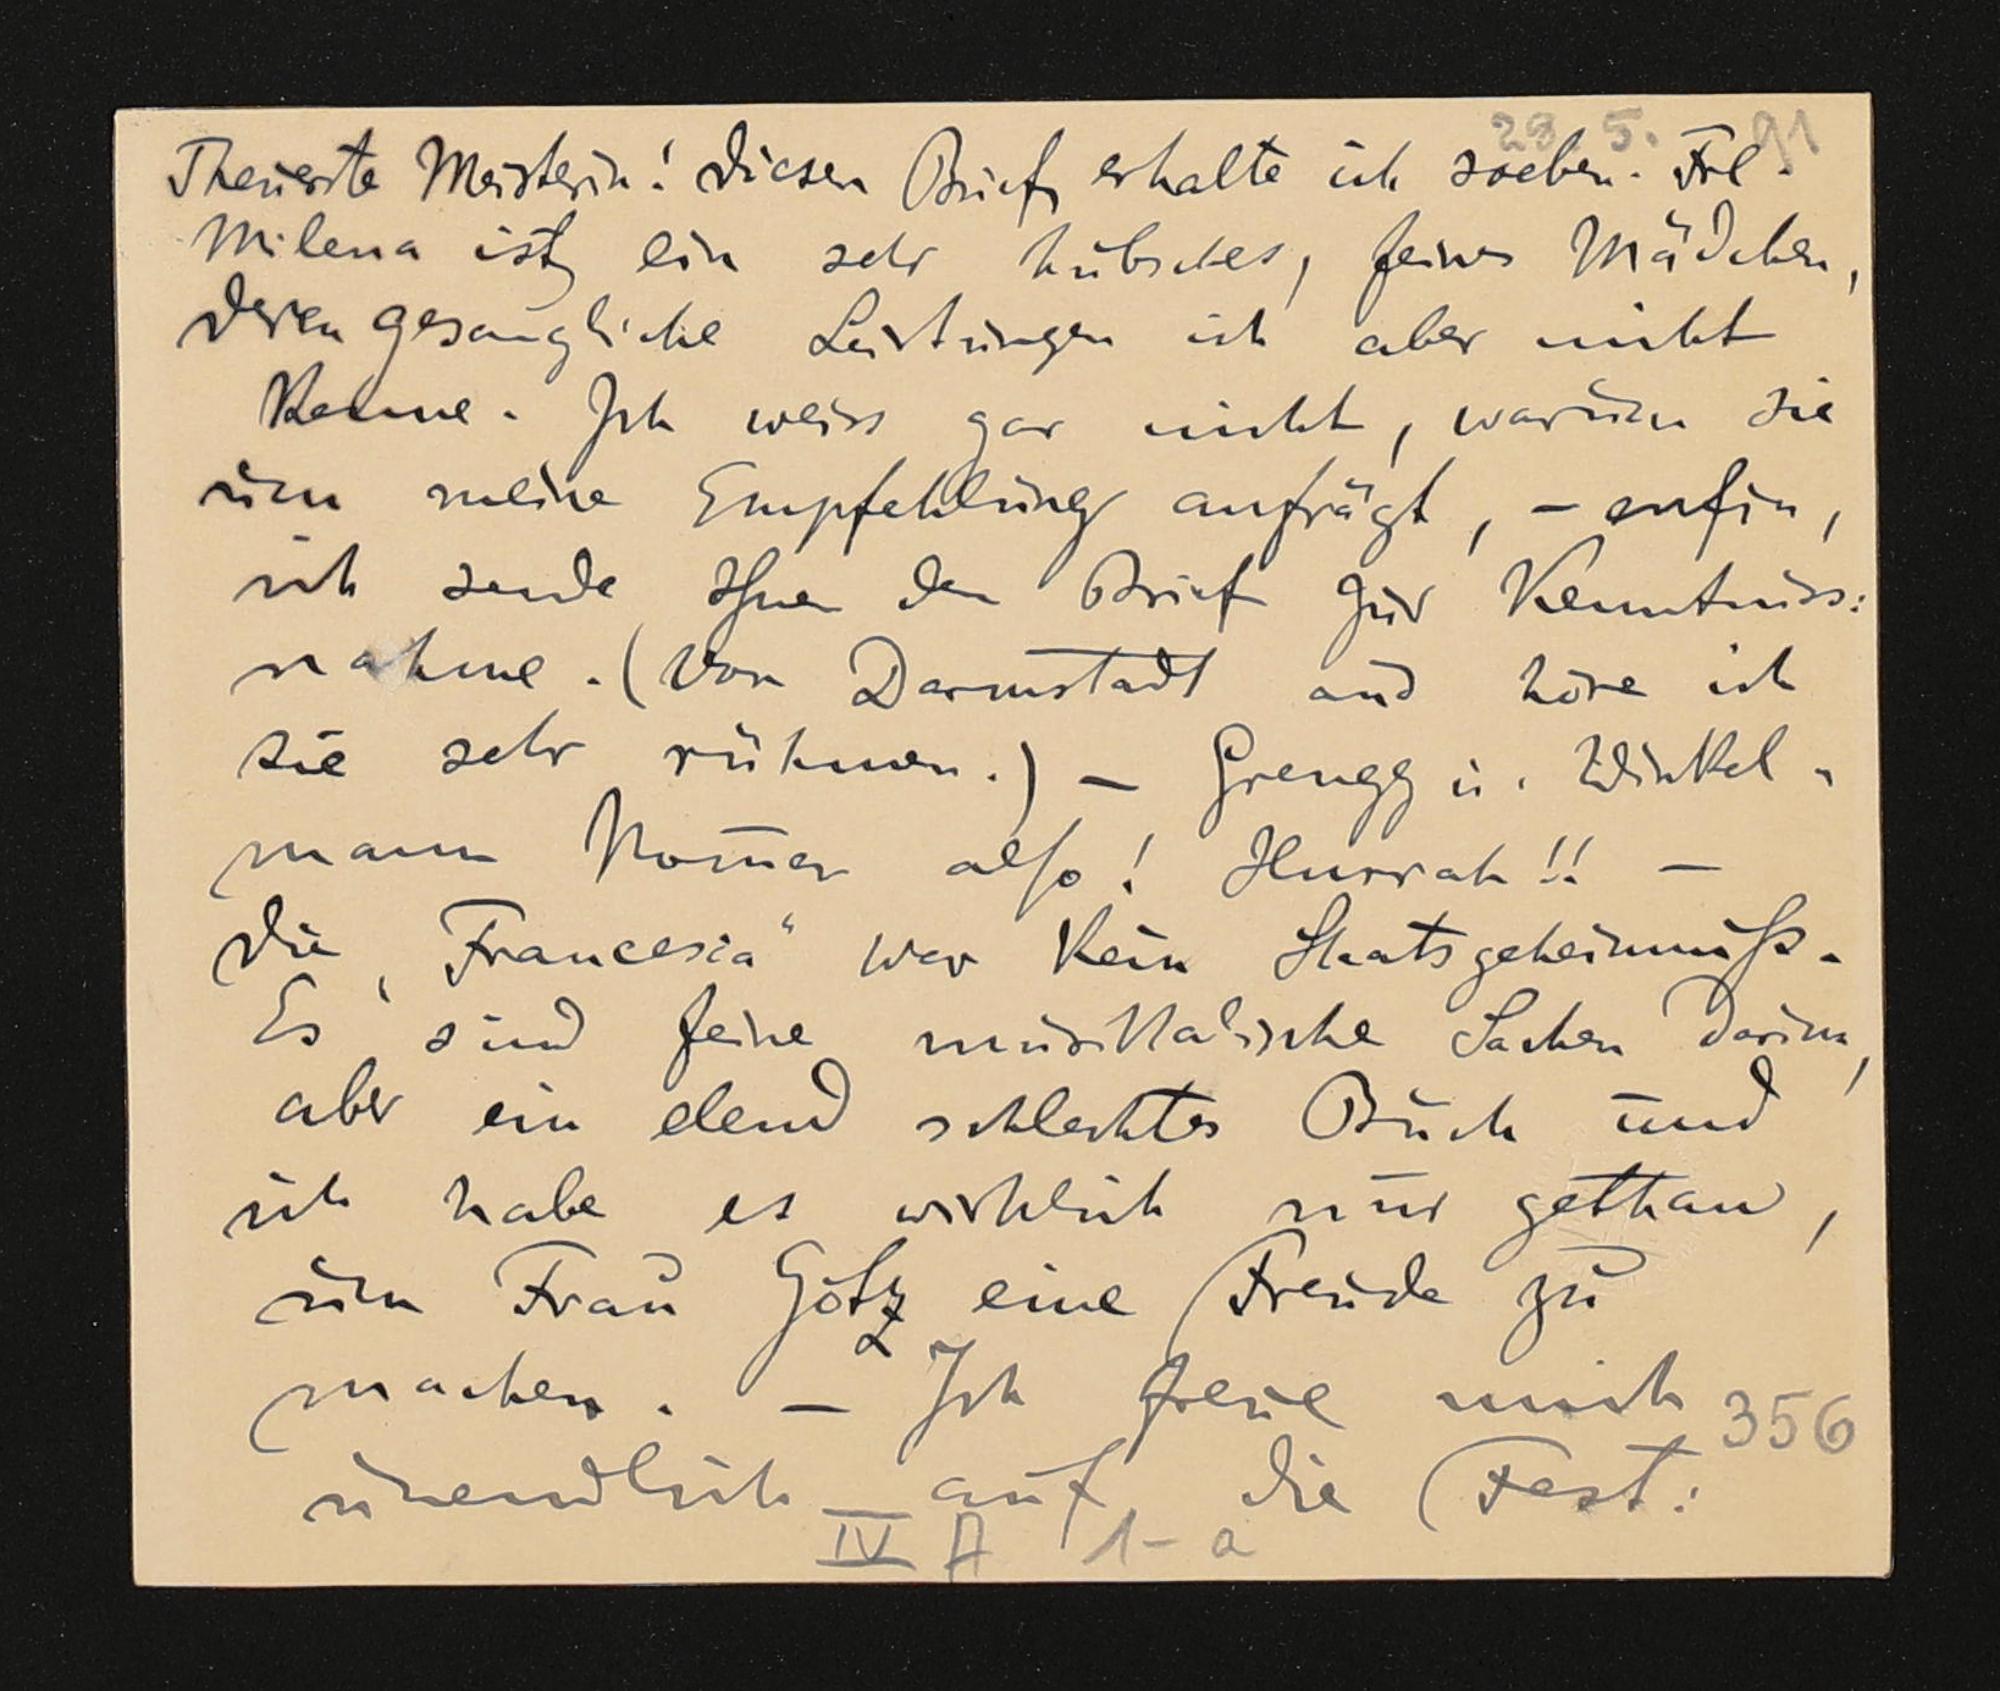 28. 5. 91
Theuerste Meisterin! Diesen Brief erhalte ich soeben. Frl.
Milena ist ein sehr hübsches, feines Mädchen,
deren gesangliche Leistungen ich aber nicht
kenne. Ich weiss gar nicht, warum sie
um meine Empfehlung anfrägt, – enfin,
ich sende Ihnen den Brief zur Kenntniss:
nahme. (Von Darmstadt aus höre ich
sie sehr rühmen.) – Grengg u. Winkel-
mann kom̅en also! Hurrah!! –
Die „Francesca" war kein Staatsgeheimniß.
Es sind feine musikalische Sachen darin,
aber ein elend schlechtes Buch und
ich habe es wirklich nur gethan,
um Frau Götz eine Freude zu
machen. – Ich freue mich
unendlich auf die Fest:
356
IV A 1-a